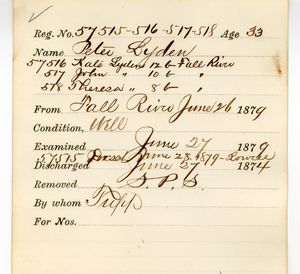 Reg. No. 57515-516-517-518 Age 33
Name Peter Lyden
57516 Kate Lyden 12 b Fall River
517 John " 10 b "
518 Theresa " 8 b "
From Fall River June 26 1879
Condition, Well
Examined June 27 1879
57515 June 28 1879 - Lowell
Discharged June 27 1874
Removed S. P. S.
By whom Tripp
For Nos.